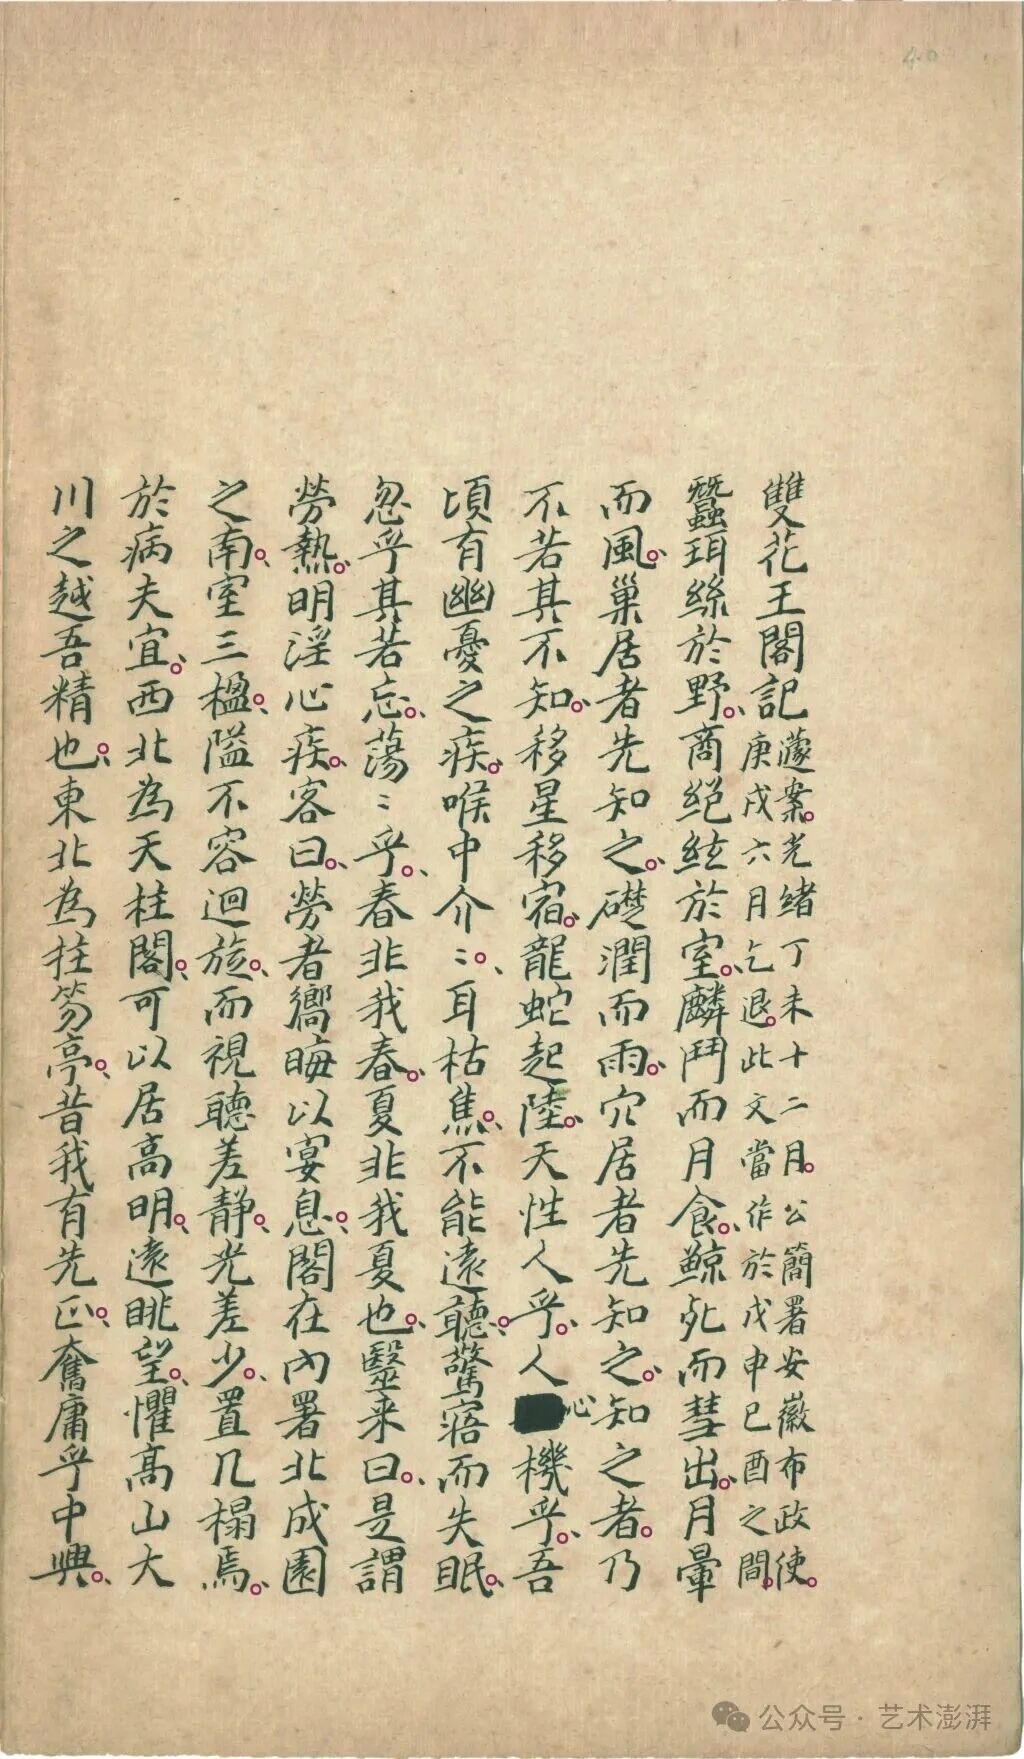 40
雙花王閣記 謹案。光緒丁未十二月。公簡署安徽布政使。
庚戌六月乞退。此文當作於戊申己酉之間。
蠶珥絲於野、商絕絃於室、麟鬥而月食、鯨死而彗出、月暈
而風、巢居者先知之、礎潤而雨、穴居者先知之、知之者。乃
不若其不知、移星移宿、龍蛇起陸、天性人乎、人心機乎、吾
頃有幽憂之疾、喉中介〻、耳枯焦、不能遠聽、驚寤而失眠、
忽乎其若忘、蕩〻乎、春非我春、夏非我夏也、毉来曰、是謂
勞熱、明淫心疾、客曰、勞者嚮晦以宴息、閣在內署北成園
之南、室三楹、隘不容迴旋、而視聽差靜、光差少、置几榻焉、
於病夫宜、西北為天柱閣、可以居高明、遠眺望、懼高山大
川之越吾精也、東北為拄笏亭、昔我有先正、奮庸乎中興、
公众号·艺术澎湃